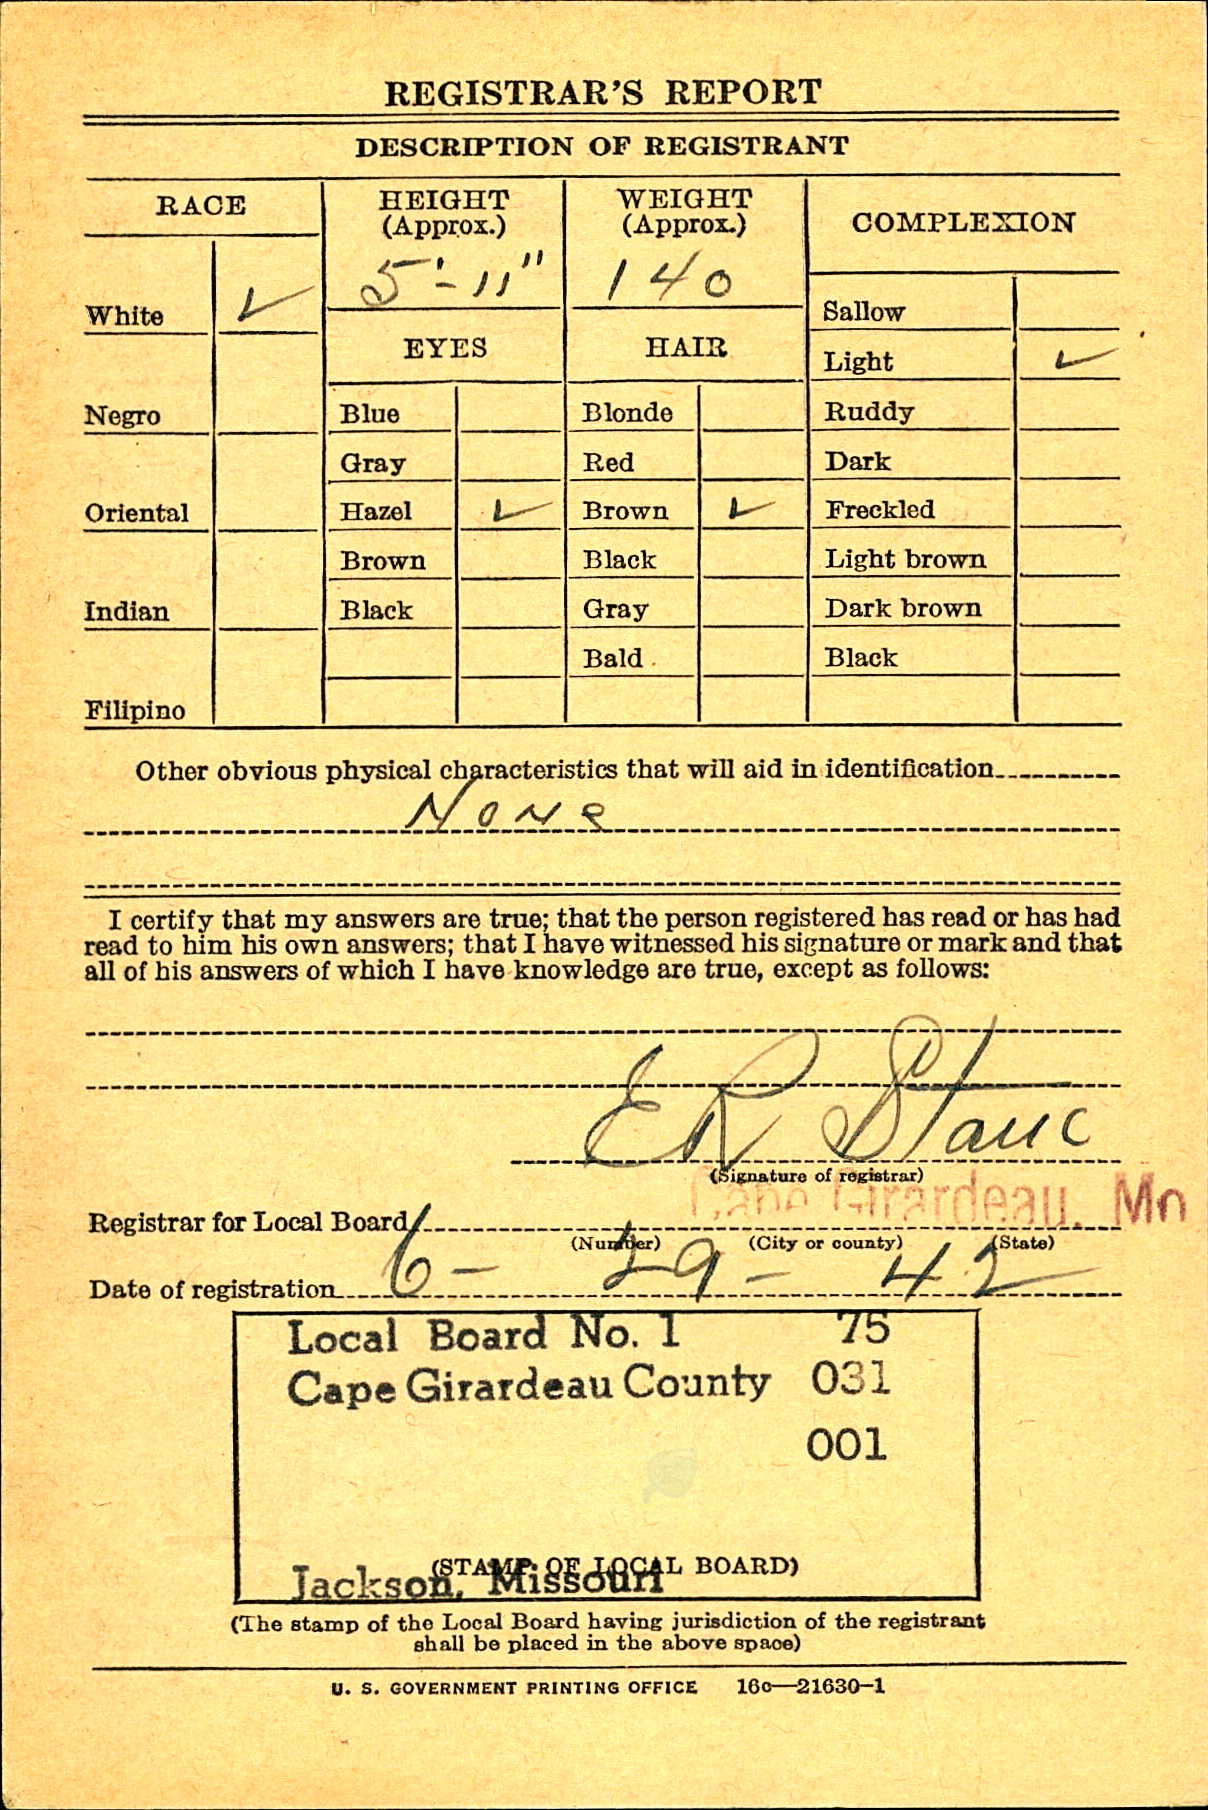 REGISTRAR'S REPORT
DESCRIPTION OF REGISTRANT
RACE
HEIGHT
(Approx.)
5'-11"
WEIGHT
(Approx.)
140
COMPLEXION
White ✓
Negro
Oriental
Indian
Filipino
EYES
Blue
Gray
Hazel ✓
Brown
Black
HAIR
Blonde
Red
Brown ✓
Black
Gray
Bald
Sallow
Light ✓
Ruddy
Dark
Freckled
Light brown
Dark brown
Black
Other obvious physical characteristics that will aid in identification
None
I certify that my answers are true; that the person registered has read or has had
read to him his own answers; that I have witnessed his signature or mark and that
all of his answers of which I have knowledge are true, except as follows:
E R
(Signature of registrar)
Cape Girardeau, Mo
Registrar for Local Board
(Number) (City or county) (State)
Date of registration 6-29-42
Local Board No. 1 75
Cape Girardeau County 031
001
(STAMP OF LOCAL BOARD)
Jackson, Missouri
(The stamp of the Local Board having jurisdiction of the registrant
shall be placed in the above space)
U. S. GOVERNMENT PRINTING OFFICE 16c—21630-1